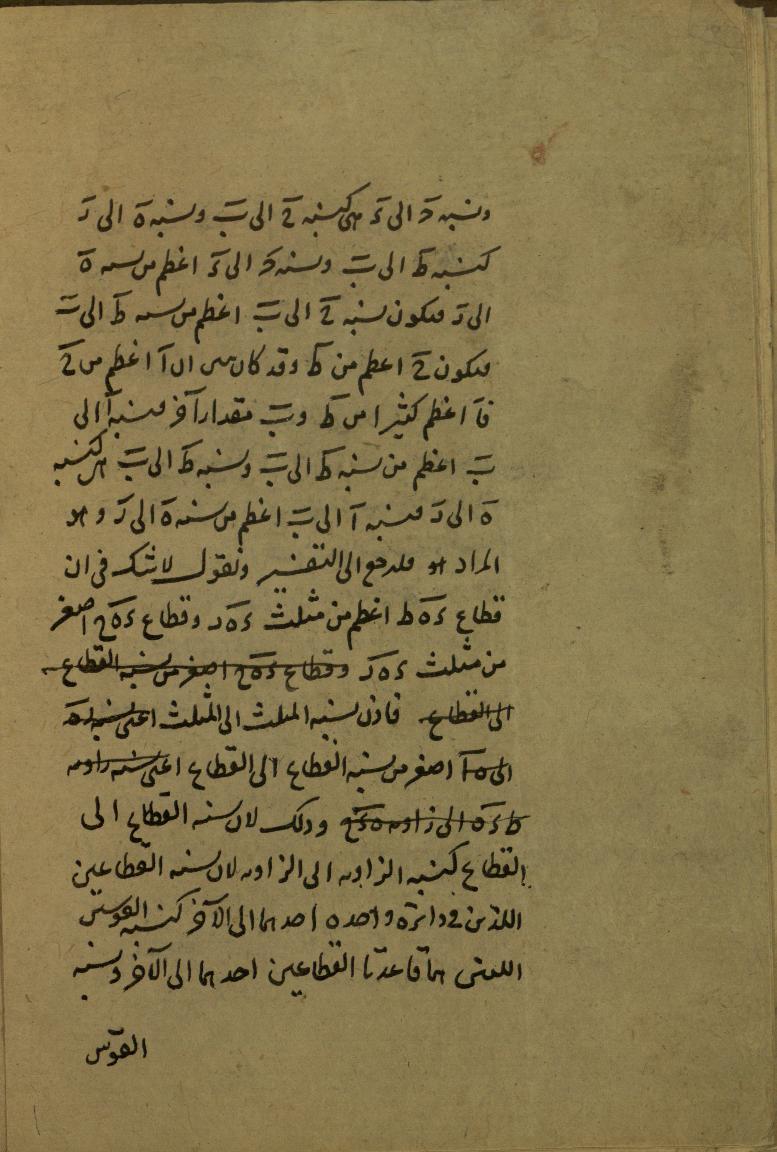 ونسبه حَ الى ءَ هى كنسبه حَ الى بَ ونسبه هَ الى زَ
كنسبه طَ الى بَ ونسبه حَ الى ءَ اعظم من نسبه هَ
الى زَ فيكون نسبه حَ الى بَ اعظم من نسبه طَ الى بَ
فيكون حَ اعظم من طَ وقد كان ان آ اعظم من حَ
فآ اعظم كثيرا من طَ وبَ مقدار آخر فنسبه آ الى
بَ اعظم من نسبه طَ الى بَ ونسبه طَ الى بَ هى كنسبه
هَ الى زَ فنسبه آ الى بَ اعظم من نسبه هَ الى زَ وهو
المراد فلنرجع الى التفسير ونقول لا شك فى ان
قطاع ءهط اعظم من مثلث ءهد وقطاع ءهح اصغر
من مثلث ءهد وقطاع ءهح اصغر من نسبه القطاع
الى القطاع فاذن نسبه المثلث الى المثلث اعنى نسبه
الى هآ اصغر من نسبه القطاع الى القطاع اعنى نسبه زاويه
طءه الى زاويه وذلك لان نسبه القطاع الى
القطاع كنسبه الزاويه الى الزاويه لان نسبه القطاعين
اللذين فى دائرة واحدة احدهما الى الآخر كنسبه القوسين
اللتين هما قاعدتا القطاعين احدهما الى الآخر ونسبه
القوس